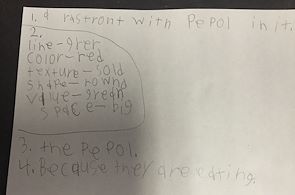 1. a rastront with PePol in it.
2.
line-grer
color-red
texture-sold
shape-rownd
value-grean
space-big
3. the PePol.
4. Because they are eating.